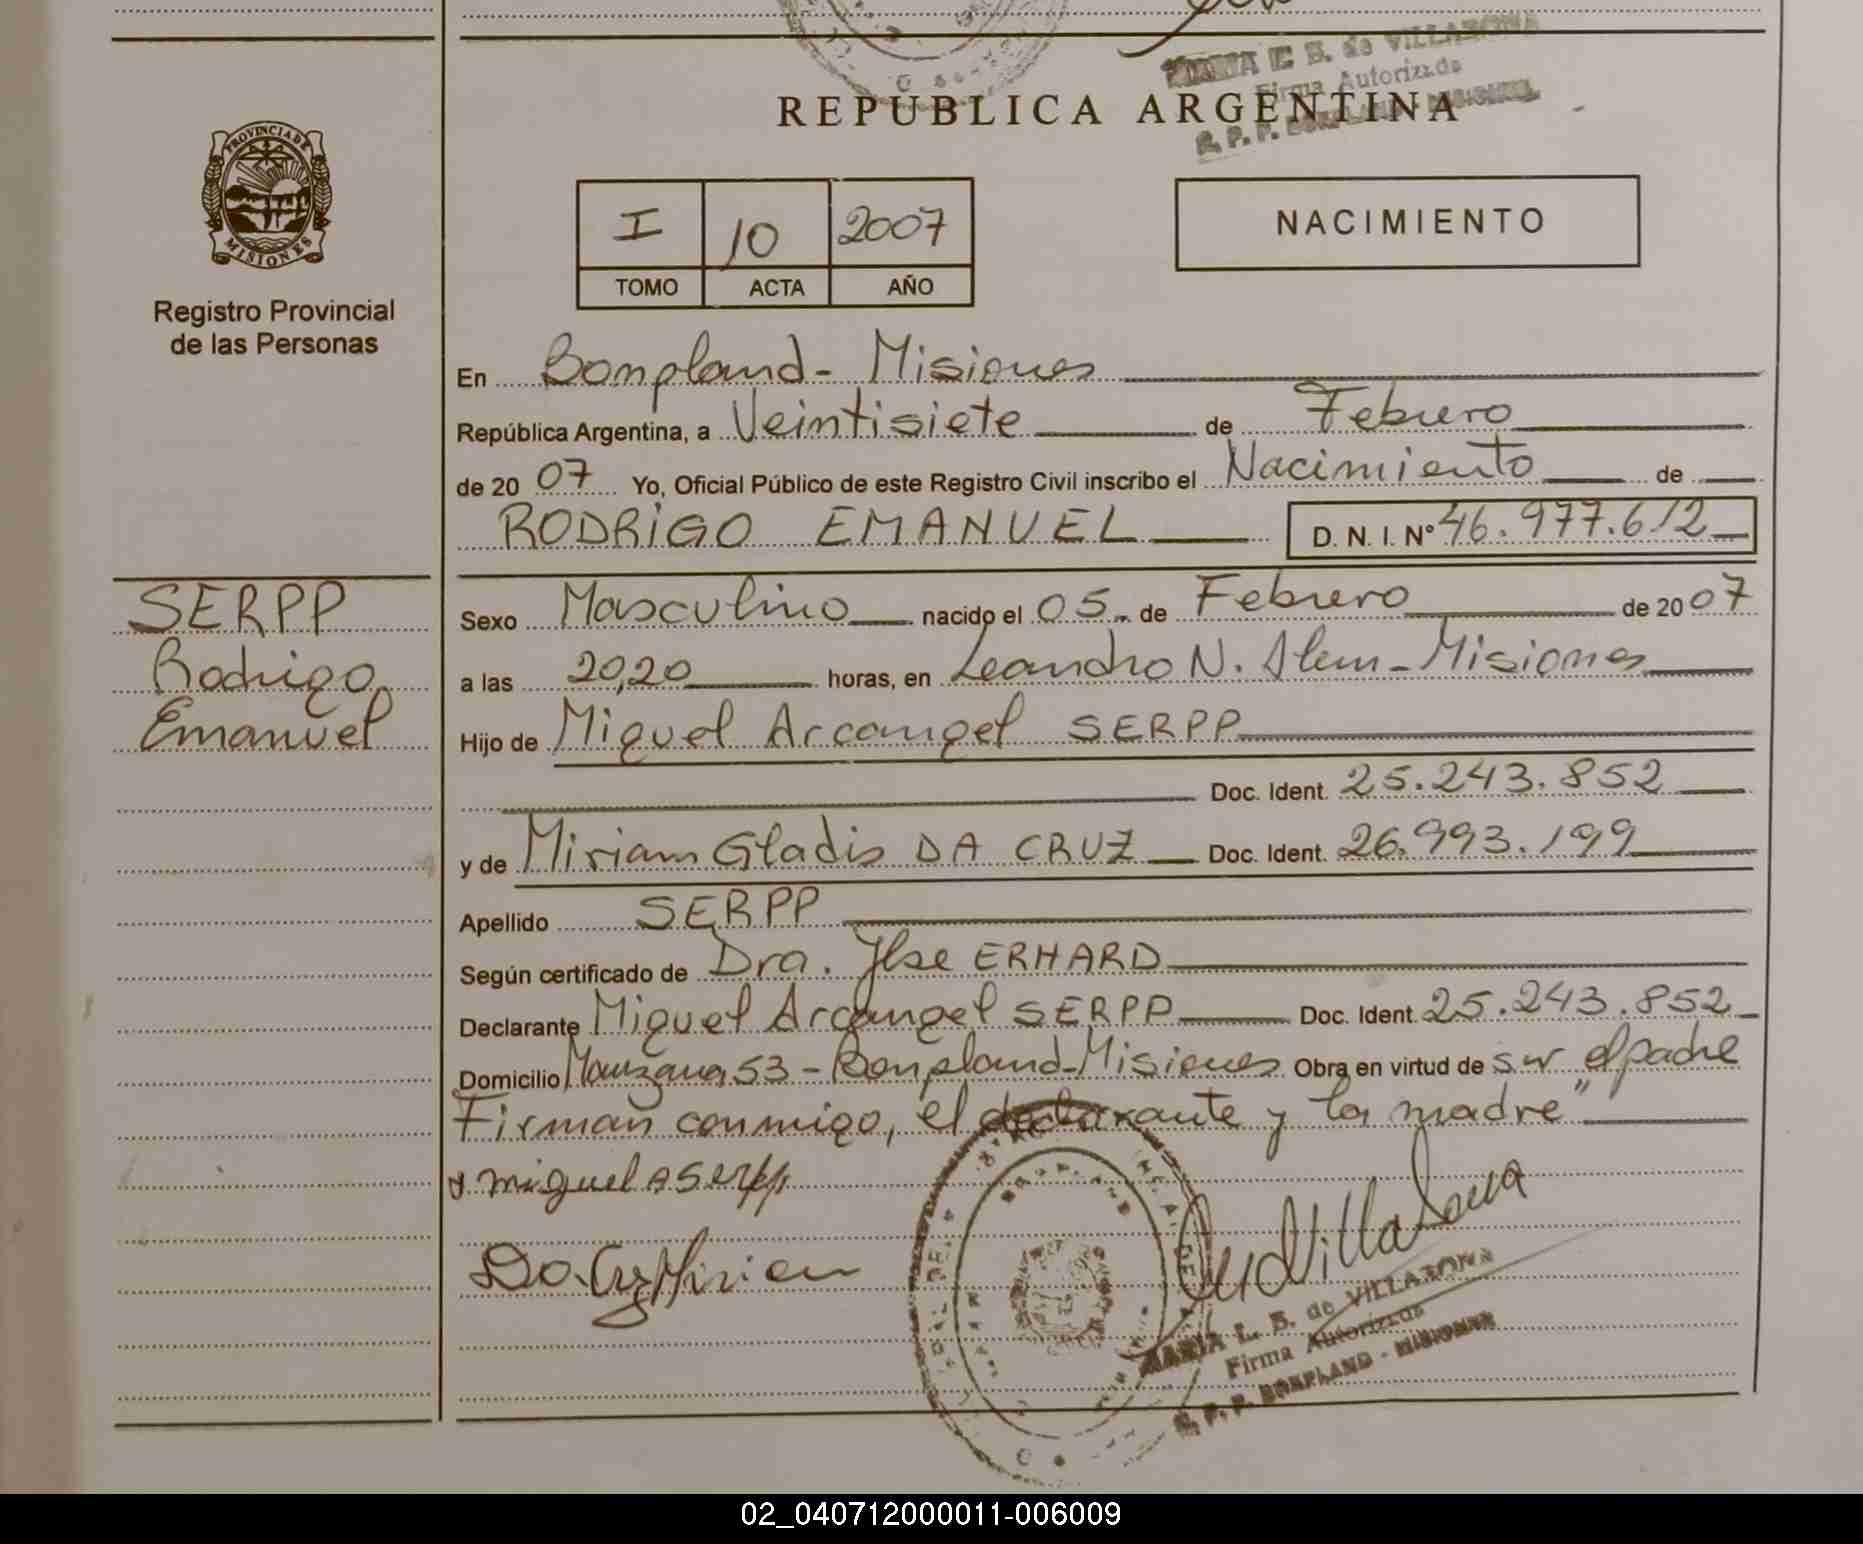 MARIA L. B. de VILLABONA
Firma Autorizada
R. P. P. BONPLAND - MISIONES
REPUBLICA ARGENTINA
PROVINCIA DE
MISIONES
Registro Provincial
de las Personas
I 10 2007
TOMO ACTA AÑO
NACIMIENTO
En Bonpland - Misiones
República Argentina, a Veintisiete de Febrero
de 20 07 Yo, Oficial Público de este Registro Civil inscribo el Nacimiento de
RODRIGO EMANUEL D. N. I. N° 46.977.612
SERPP
Rodrigo
Emanuel
Sexo Masculino nacido el 05 de Febrero de 20 07
a las 20,20 horas, en Leandro N. Alem - Misiones
Hijo de Miguel Arcangel SERPP
Doc. Ident. 25.243.852
y de Miriam Gladis DA CRUZ Doc. Ident. 26.993.199
Apellido SERPP
Según certificado de Dra. Ilse ERHARD
Declarante Miguel Arcangel SERPP Doc. Ident. 25.243.852
Domicilio Manzana 53 - Bonpland - Misiones Obra en virtud de ser "el padre
Firman conmigo, el declarante y la madre"
miguel A Serpp
Da Cruz Mirian
MARIA L. B. de VILLABONA
Firma Autorizada
R. P. P. BONPLAND - MISIONES
02_040712000011-006009